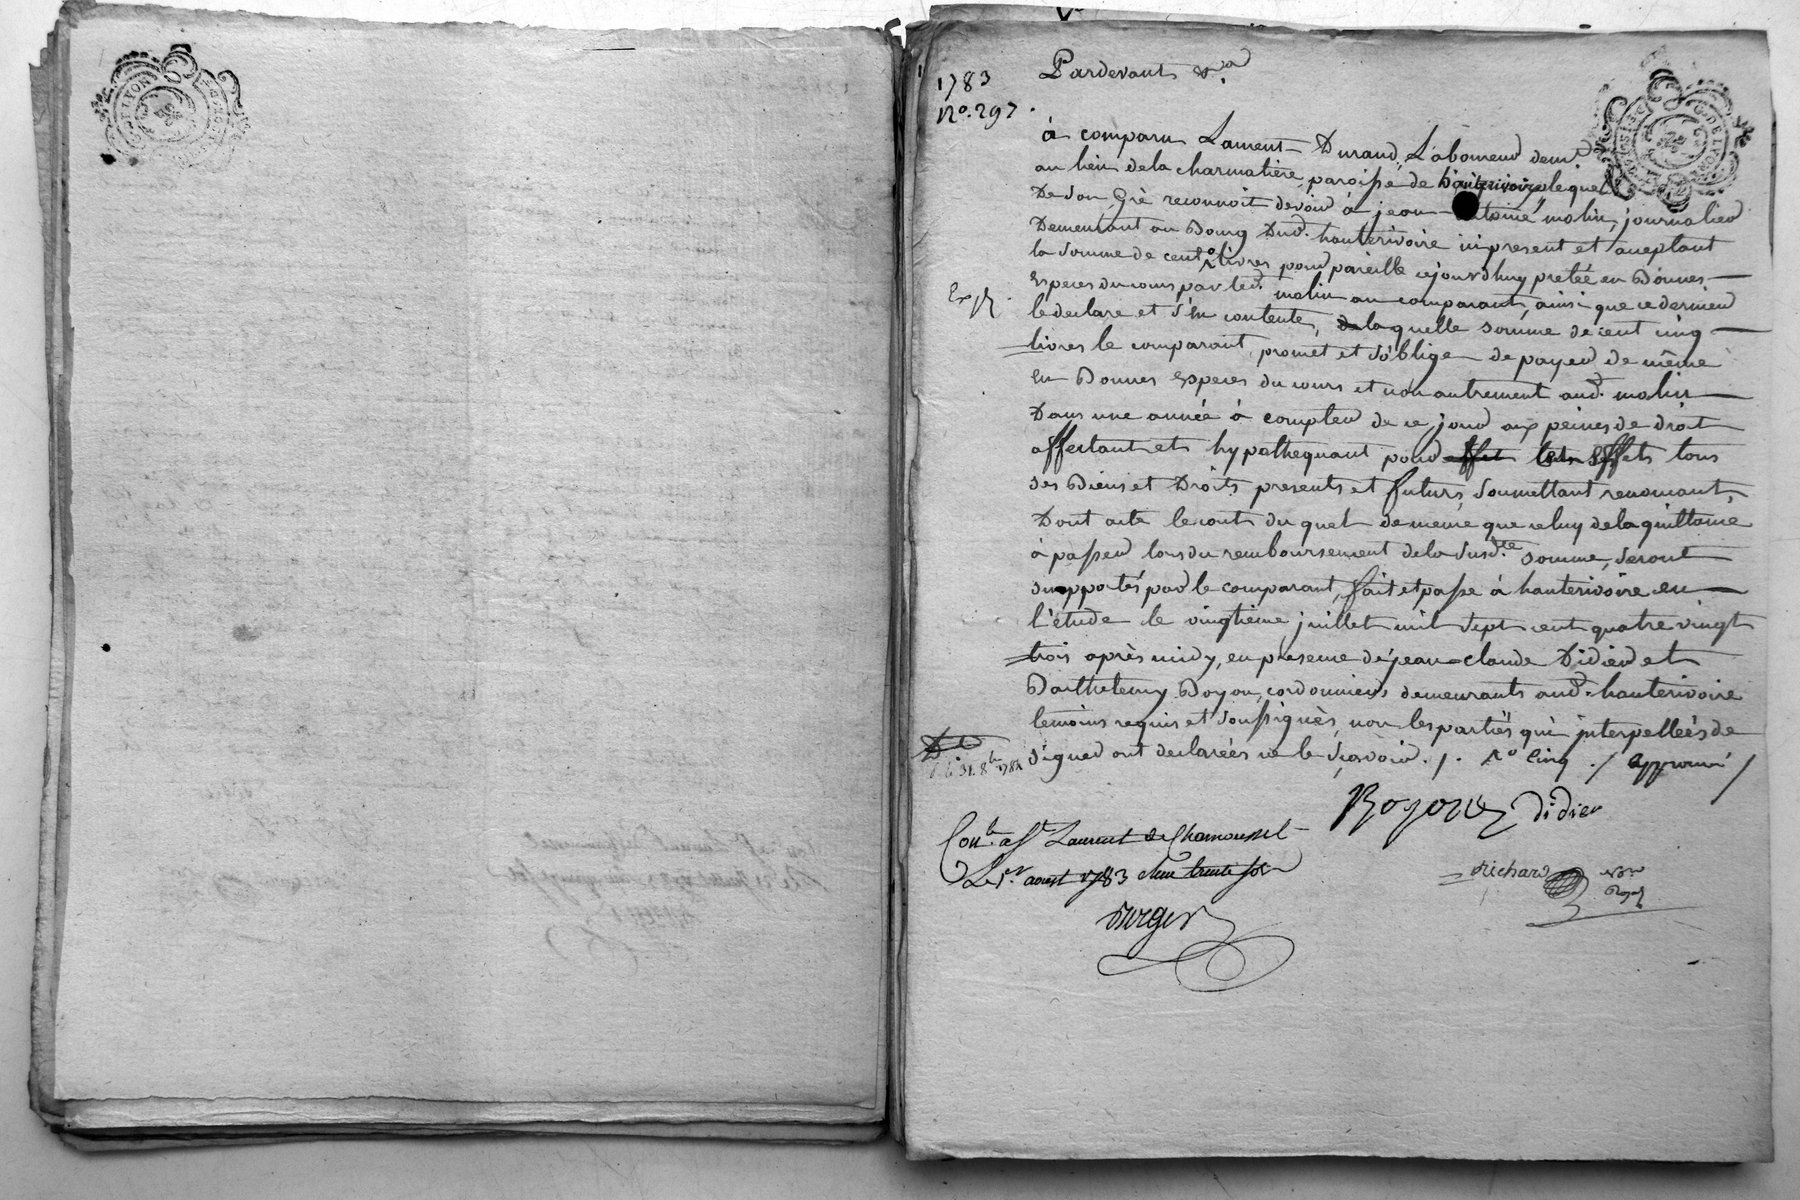 1783
N°. 297.
Pardevant &.a
à comparu Laurent Durand, Laboureur demt.
au lieu de la charmatière, paroisse de hauterivoire, lequel
De Son Gré reconnoit devoir à jean antoine molin, journalier
Demeurant au Bourg Dud. hauterivoire ici present et aceptant
la Somme de cent livres pour pareille cejourdhuy pretée en Bonnes
Especes du cours par led. molin au comparant, ainsi que ce dernier
le declare et S'en contente, de laquelle Somme de cent cinq
livres le comparant, promet et S'oblige de payer de même
En Bonnes Especes du cours et non autrement aud. molin
Dans une année à compter de ce jour aux peines de droit
affectant et hypothequant pour Effets tous
Ses Biens et Droits presents et futurs, Soumettant renoncant,
Dont acte le cout du quel de meme que celuy de la quittance
à passer lors du remboursement de la Susd.te Somme, Seront
Supportés par le comparant, fait et passé à hauterivoire en
l'étude le vingtieme juillet mil Sept cent quatre vingt
trois après midy, en presence de jean-claude Didier et
Barthelemy Boyon, cordonniers demeurants aud. hauterivoire
temoins requis et Soussignés, non les parties qui interpellées de
Signer ont declarées ne le Sçavoir. /. Ro Cinq. / approuvé /
Exp.
le 31. 8bre 178
Boyon Didier
Conlé. à St. Laurent de Chamousset
Le 1er. aoust 1783 Reçu trente Sols
Berger
Richard nore
Royal
G. DE LYON